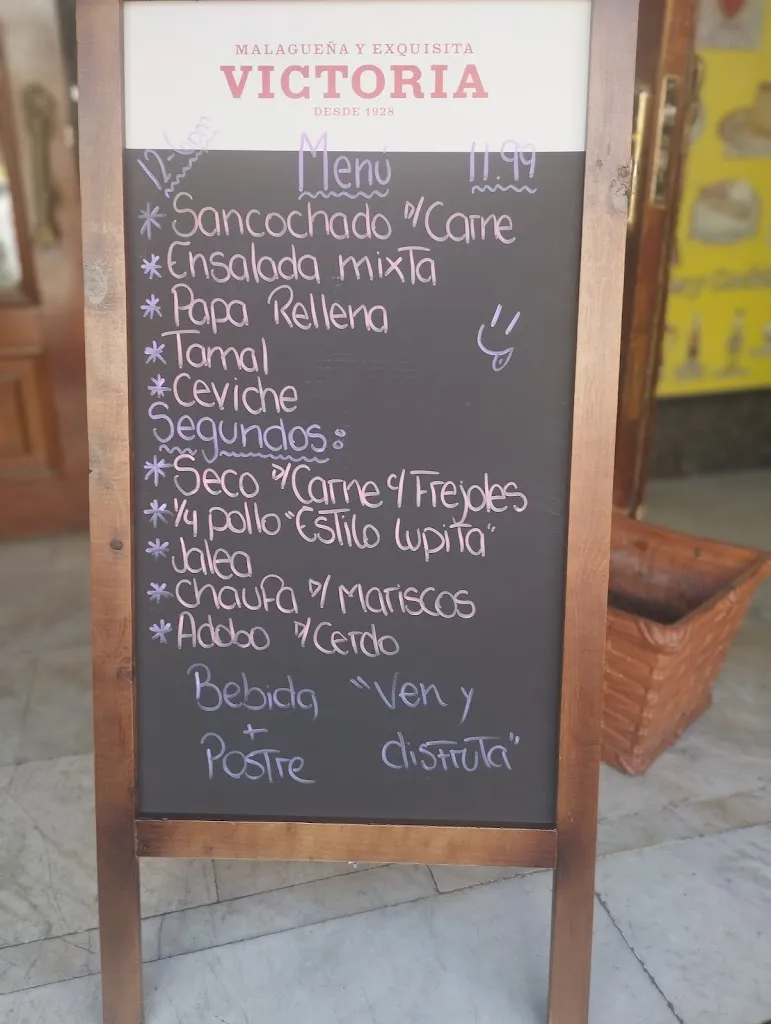 MALAGUEÑA Y EXQUISITA
VICTORIA
DESDE 1928
12-6pm Menú 11.99
* Sancochado D/Carne
* Ensalada mixta
* Papa Rellena
* Tamal
* Ceviche
Segundos:
* Seco D/Carne c/Frejoles
* 1/4 pollo "Estilo Lupita"
* Jalea
* Chaufa D/ Mariscos
* Adobo D/Cerdo
Bebida "Ven y
+
Postre disfruta"